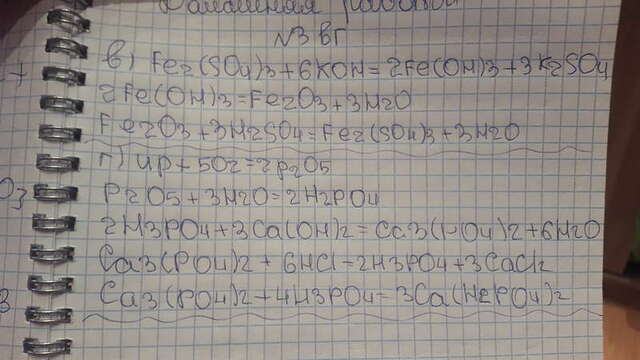 Домашняя работа
№3 вг
в) Fe2(SO4)3+6KOH=2Fe(OH)3+3K2SO4
2Fe(OH)3=Fe2O3+3H2O
Fe2O3+3H2SO4=Fe2(SO4)3+3H2O
г) 4P+5O2=2P2O5
P2O5+3H2O=2H2PO4
2H3PO4+3Ca(OH)2=Ca3(PO4)2+6H2O
Ca3(PO4)2+6HCl=2H3PO4+3CaCl2
Ca3(PO4)2+4H3PO4=3Ca(H2PO4)2